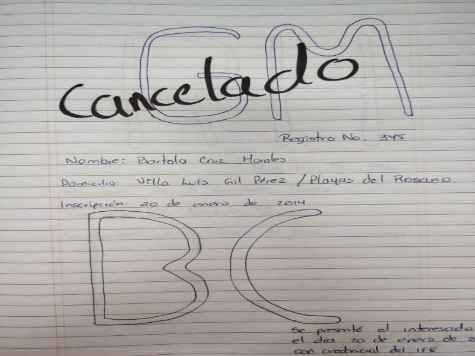 GM
Cancelado
Registro No. 345
Nombre: Bartola Cruz Morales
Domicilio: Villa Luis Gil Pérez / Playas del Rosario
Inscripción 20 de enero de 2014
BC
Se presentó el interesado
el dia 20 de enero de
con credencial del IFE